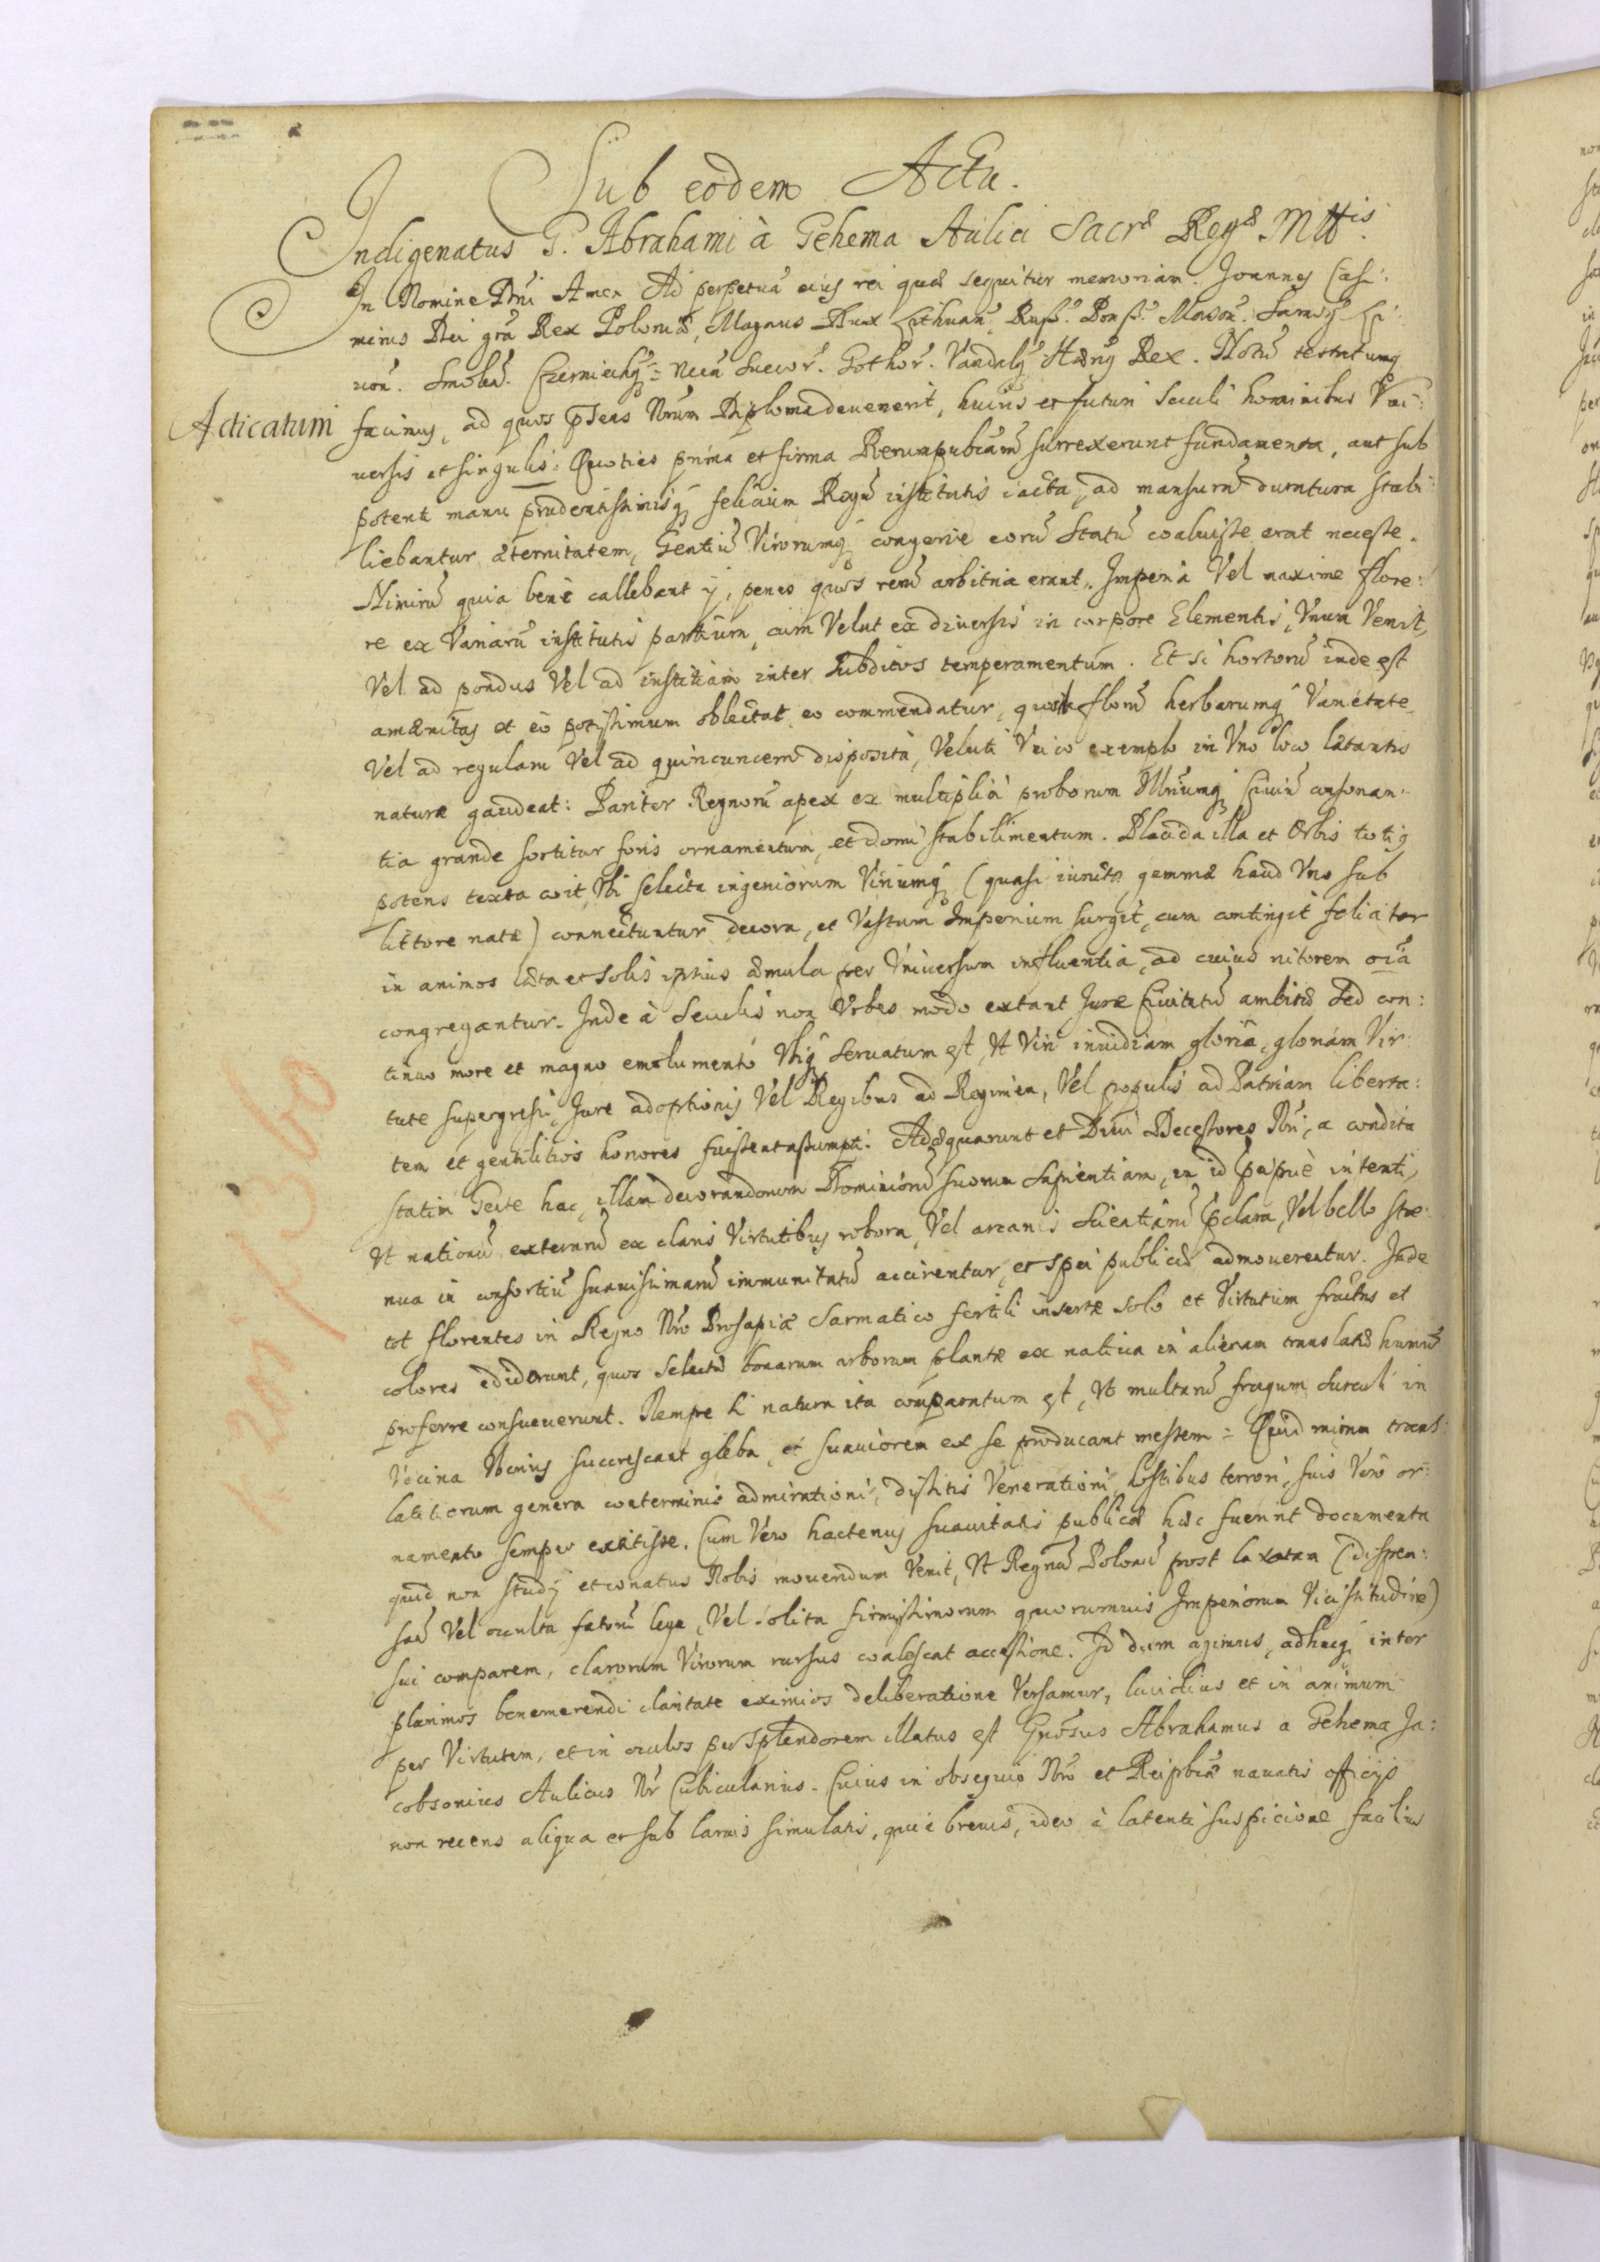 Sub eodem Actu.
Indigenatus G. Abrahami à Gehema Aulici Sacræ Regæ Mttis.
In Nomine Dni Amen Ad perpetuā eius rei quæ sequitur memoriam. Joannes Casi:
mirus Dei grā Rex Poloniæ, Magnus Dux Lithuan, Russ. Pruss. Masou. Samog. Li:
uon. Smolen. Czerniechq: necn Sueco r. Gothor. Vandalq Hærq Rex. Notū testatumq
Acticatum
facimus, ad quos pñtens Nrum Diploma deuenerit, huius et futuri seculi hominibus Vni:
uersis et singulis: Quoties prima et firma Rerumpubcarū surrexerunt fundamenta, aut sub
potenti manu prudentissimisq felicium Regū institutis iacta, ad mansurā duratura stabi:
liebantur æternitatem, Gentiū Virorumq congerie eorū Statū coaluisse erat necesse.
Nimirū quia bene callebant ij, penes quos rerū arbitria erant. Imperia Vel maxime flore:
re ex Variarū institutis partium, cum Velut ex diuersis in corpore Elementis, Vnum Venit,
Vel ad pondus Vel ad iustitiam inter subditos temperamentum. Et si hortorū inde est
amænitas et eò potissimum oblectat eo commendatur, quod florū herbarumq Varietate
Vel ad regulam Vel ad quincuncem disposita, Veluti Vnico exemplo in Vno loco lætantis
naturæ gaudeat: Pariter Regnorū apex ex multiplici proborum Illriumq Ciuiū consonan:
tia grande sortitur foris ornamentum, et domi stabilimentum. Placida illa et Orbis totiq
potens texta coit, Vbi selecta ingeniorum Viriumq (quasi iunctæ gemmæ haud Vno sub
littore natæ) connectuntur decora, et Vastum Imperium surgit, cum contingit feliciter
in animos læta et solis ipsius æmula per Vniuersum influentia, ad cuius nitorem oīa
congregantur. Inde à Seculis non Vrbes modo extant Juræ Ciuitatū ambitæ sed con:
tinuo more et magno emolumento Vbiq seruatum est, Vt Viri inuidiam gloria, gloriam Vir:
tute supergressi, Jure adoptionis Vel Regibus ad Regimen, Vel populis ad Patriam liberta:
tem et gentilitios honores fuissent assumpti. Adæquarunt et Diui Decessores Nri, a condita
statim Gente hac, illam decorandorum Dominiorū suorum sapientiam, in id præcipuè intenti,
Vt nationū externarū ex claris Virtutibus robora, Vel arcanis scientiarū pclara, Vel bello stre:
nua in consortiū suauissimarū immunitatū accirentur, et spei publicæ admouerentur. Inde
tot florentes in Regno Nro Prosapiæ Sarmatico fertili insertæ solo et Virtutum fructus et
colores ediderunt, quos selectæ bonarum arborum plantæ ex natiua in alienam translatæ humū
proferre consueuerunt. Nempe à natura ita comparatum est, Vt multarū frugum surculi in
Vicina Vberius succrescant gleba, et suauiorem ex se producant messem: Quid mirum trans:
latitiorum genera conterminis admirationi, dissitis Venerationi, hostibus terrori, suis Vero or:
namento semper extitisse. Cum Vero hactenus suauitatis publicæ hæc fuerint documenta
quid non studij et conatus Nobis mouendum Venit, Vt Regnū Poloniæ post laxatam (dispen:
san Vel occulta fatorū lege, Vel solita firmissimorum quorumuis Imperiorum Vicissitudine)
sui comparem, clarorum Virorum rursus coalescat accessione. Id dum agimus, adhucq inter
plurimos benemerendi claritate eximios deliberatione Versamur, lucidius et in animum
per Virtutem, et in oculos per splendorem illatus est Gnosus Abrahamus a Gehema Ja:
cobsonius Aulicus Nr Cubicularius. Cuius in obsequio Nro et Reipbcæ nauatis officijs
non recens aliqua et sub laruis simulatis, quæ breuis, ideo à latenti suspicione facilius